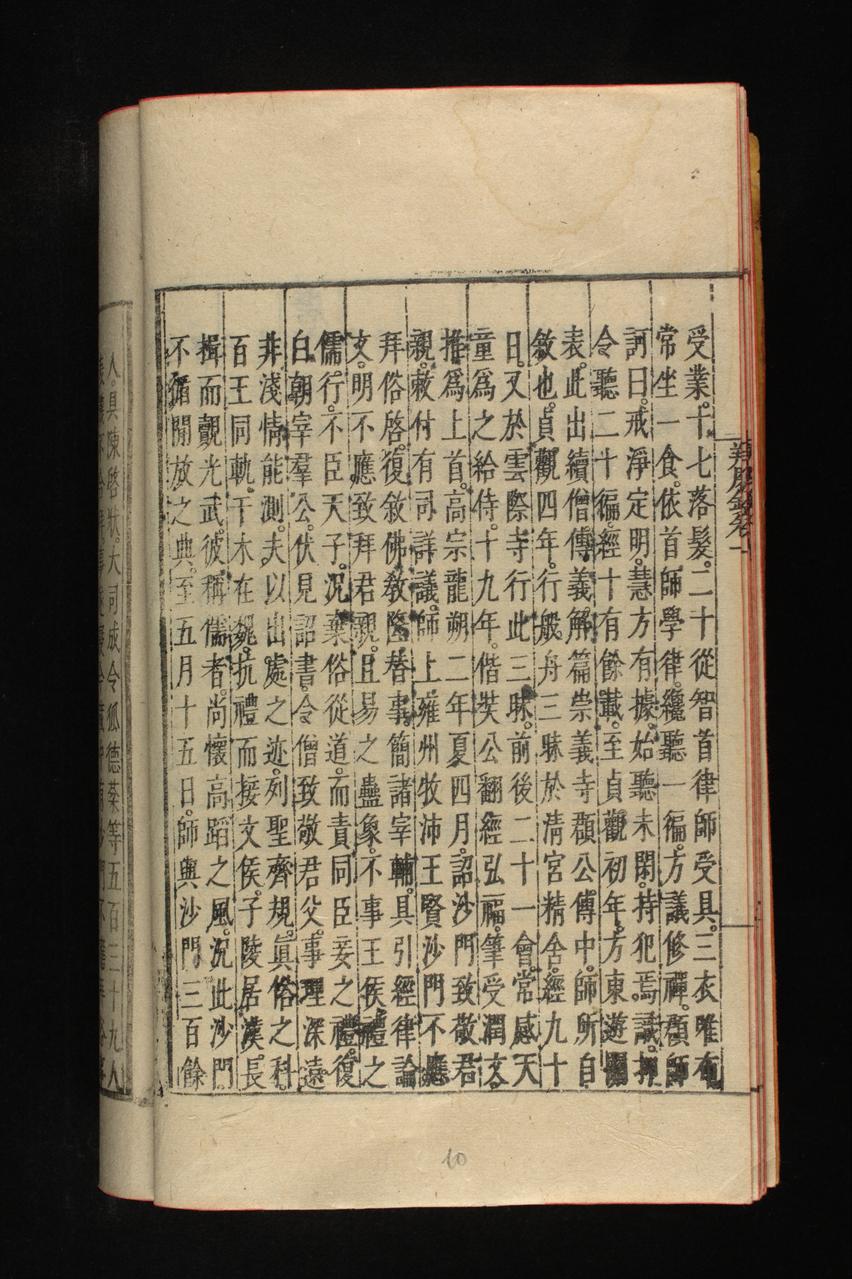 受業十七落髮二十從智首律師受具三衣唯布
常坐一食依首師學律纔聽一徧方議修禪顗師
訶曰戒淨定明慧方有據始聽未閑持犯焉識
令聽二十徧經十有餘載至貞觀初年方東遊
表此出續僧傳義解篇崇義寺顗公傳中師所自
敘也貞觀四年行般舟三昧於清宮精舍經九十
日又於雲際寺行此三昧前後二十一會常感天
童爲之給侍十九年偕奘公翻經弘福筆受潤文
推爲上首高宗龍朔二年夏四月詔沙門致敬君
親敕付有司詳議師上雍州牧沛王賢沙門不應
拜俗啓復敘佛教隆替事簡諸宰輔具引經律論
文明不應致拜君親且易之蠱象不事王侯禮之
儒行不臣天子況棄俗從道而責同臣妾之禮復
白朝宰羣公伏見詔書令僧致敬君父事理深遠
非淺情能測夫以出處之迹列聖齊規真俗之科
百王同軌干木在魏抗禮而接文侯子陵居漢長
揖而觀光武彼稱儒者尚懷高蹈之風況此沙門
不循開放之典至五月十五日師與沙門三百餘
人具陳啓狀大司成令狐德棻等五百三十九人
卷一
10